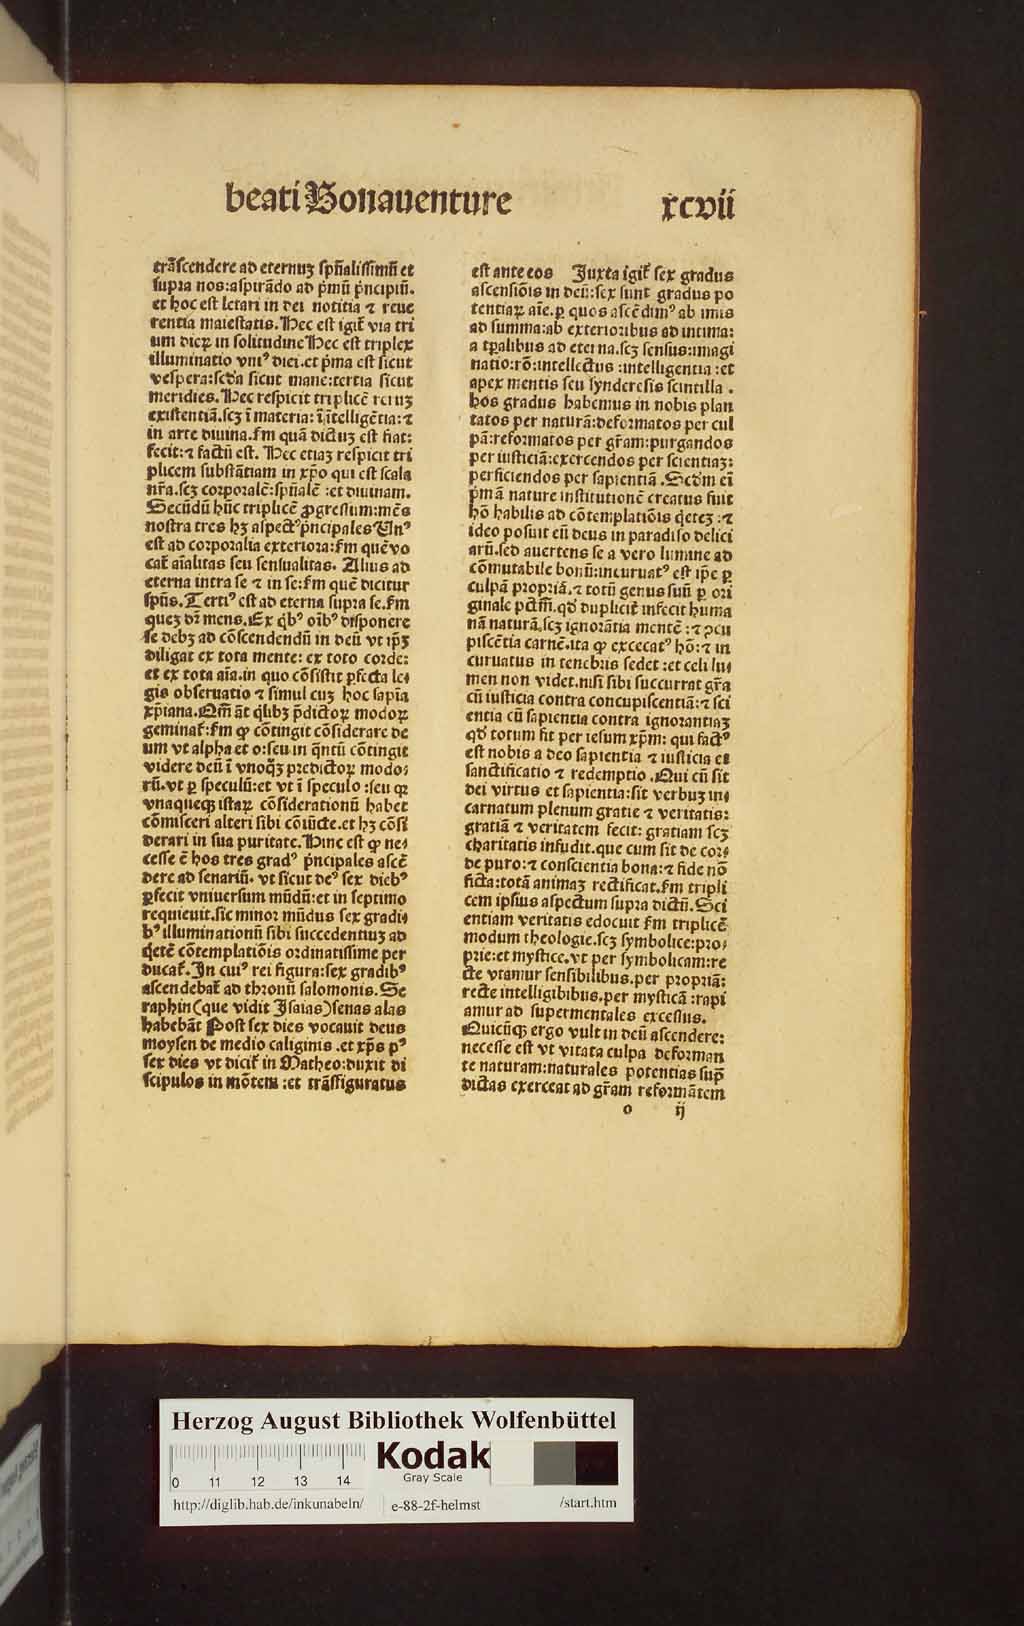 beati Bonauenture xcvii
trãscendere ad eternuʒ spñalissimũ et
supra nos:aspirãdo ad p̃mũ p̃ncipiũ.
et hoc est letari in dei notitia ⁊ reue
rentia maiestatis. Hec est igit̃ via tri
um dieꝝ in solitudine Hec est triplex
illuminatio vniꝰ diei.et p̃ma est sicut
vespera:secd̃a sicut mane:tertia sicut
meridies. Hec respicit triplicẽ reruʒ
existentiã.scʒ ĩ materia: ĩ ĩtelligẽtia:⁊
in arte diuina.fm quã dictuʒ est fiat:
fecit:⁊ factũ est. Hec etiaʒ respicit tri
plicem substãtiam in xp̃o qui est scala
nr̃a.scʒ corporalẽ:spñalẽ :et diuinam.
Secũdũ hũc triplicẽ ꝓgressum:mẽs
nostra tres hʒ aspectꝰ p̃ncipales Vnꝰ
est ad corporalia exteriora:fm quẽ vo
cat̃ aĩalitas seu sensualitas. Alius ad
eterna intra se ⁊ in se:fm quẽ dicitur
spũs. Tertiꝰ est ad eterna supra se.fm
queʒ dr̃ mens. Ex q̃bꝰ oĩbꝰ disponere
se debʒ ad cõscendendũ in deũ vt ip̃ʒ
diligat ex tota mente: ex toto corde:
et ex tota aĩa.in quo cõsistit ꝑfecta le⸗
gis obseruatio ⁊ simul cuʒ hoc sapĩa
xp̃iana. Qm̃ ãt q̃libʒ p̃dictoꝝ modoꝝ
geminat̃:fm ꝙ cõtingit cõsiderare de
um vt alpha et o:seu in q̃ntũ cõtingit
videre deũ ĩ vnoq̃ʒ predictoꝝ modo⸗
rũ.vt ꝑ speculũ:et vt ĩ speculo :seu qꝛ
vnaqueqʒ istaꝝ cõsiderationũ habet
cõmisceri alteri sibi cõiũcte.et hʒ cõsi
derari in sua puritate. Hinc est ꝙ ne⸗
cesse ẽ hos tres gradꝰ p̃ncipales ascẽ
dere ad senariũ. vt sicut deꝰ sex diebꝰ
ꝑfecit vniuersum mũdũ:et in septimo
requieuit.sic minor mũdus sex gradi⸗
bꝰ illuminationũ sibi succedentiuʒ ad
q̃etẽ cõtemplatiõis ordinatissime per
ducat̃. In cuiꝰ rei figura:sex gradibꝰ
ascendebat̃ ad thronũ salomonis. Se
raphin(que vidit Isaias)senas alas
habebãt Post sex dies vocauit deus
moysen de medio caliginis .et xp̃s pꝰ
sex dies vt dicit̃ in Matheo:duxit di
scipulos in mõtem :et trãsfiguratus
est ante eos Juxta igit̃ sex gradus
ascensiõis in deũ:sex sunt gradus po
tentiaꝝ aĩe.ꝑ quos ascẽdimꝰ ab imis
ad summa:ab exterioribus ad intima:
a tp̃alibus ad eterna.scʒ sensus:imagi
natio:rõ:intellectus :intelligentia :et
apex mentis seu synderesis scintilla .
hos gradus habemus in nobis plan
tatos per naturã:deformatos per cul
pã:reformatos per gr̃am:purgandos
per iusticiã:exercendos per scientiaʒ:
perficiendos per sapientiã .Scd̃m eĩ
p̃mã nature institutionẽ creatus fuit
hõ habilis ad cõtemplatiõis q̃eteʒ :⁊
ideo posuit eũ deus in paradiso delici
arũ.sed auertens se a vero lumine ad
cõmutabile bonũ:incuruatꝰ est ip̃e ꝑ
culpã propriã.⁊ totũ genus suũ ꝑ ori
ginale pctm̃.qd̃ duplicit̃ infecit huma
nã naturã.scʒ ignorãtia mentẽ :⁊ ꝯcu
piscẽtia carnẽ.ita ꝙ excecatꝰ hõ:⁊ in
curuatus in tenebris sedet :et celi lu⸗
men non videt.nisi sibi succurrat gr̃a
cũ iusticia contra concupiscentiã:⁊ sci
entia cũ sapientia contra ignorantiaʒ
qd̃ totum fit per iesum xp̃m: qui factꝰ
est nobis a deo sapientia ⁊ iusticia et
sanctificatio ⁊ redemptio .Qui cũ sit
dei virtus et sapientia:sit verbuʒ in⸗
carnatum plenum gratie ⁊ veritatis:
gratiã ⁊ veritatem fecit: gratiam scʒ
charitatis infudit.que cum sit de cor⸗
de puro:⁊ conscientia bona:⁊ fide nõ
ficta:totã animaʒ rectificat.fm tripli
cem ipsius aspectum supra dictũ. Sci
entiam veritatis edocuit fm triplicẽ
modum theologie.scʒ symbolice:pro⸗
prie:et mystice.vt per symbolicam:re
cte vtamur sensibilibus.per propriã:
recte intelligibibus.per mysticã :rapi
amur ad supermentales excessus.
Quicũqʒ ergo vult in deũ ascendere:
necesse est vt vitata culpa deforman
te naturam:naturales potentias sup̃
dictas exerceat ad gr̃am reformãtem
o ij
Herzog August Bibliothek Wolfenbüttel
0 11 12 13 14
Kodak
Gray Scale
http://diglib.hab.de/inkunabeln/ e-88-2f-helmst /start.htm